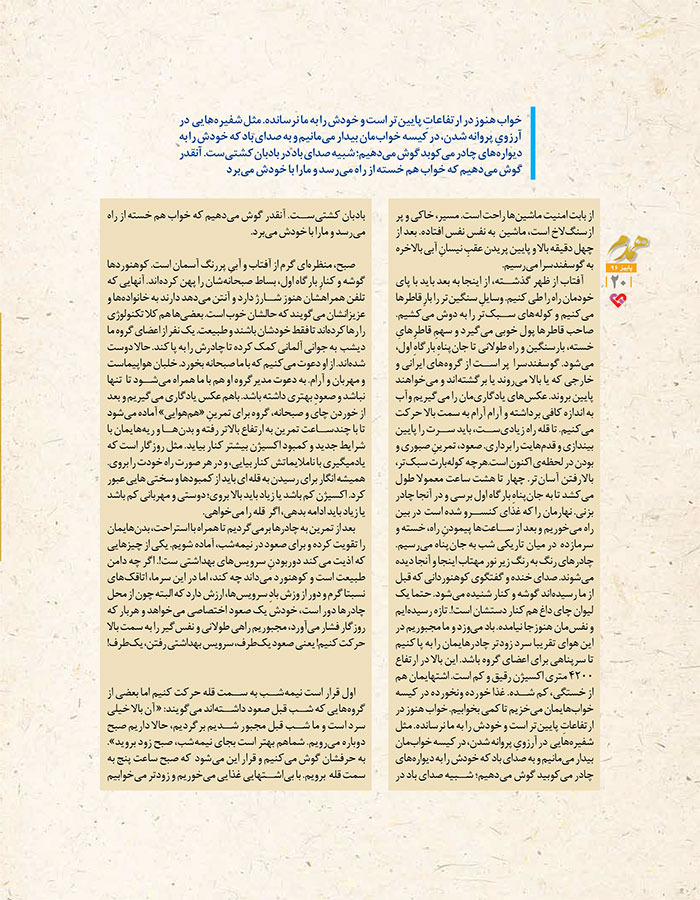 خواب هنوز در ارتفاعاتِ پایین‌تر است و خودش را به ما نرسانده. مثل شفیره‌هایی در
آرزوی پروانه شدن، در کیسه خواب‌مان بیدار می‌مانیم و به صدای باد که خودش را به
دیواره‌های چادر می‌کوبد گوش می‌دهیم؛ شبیه صدای باد در بادبان کشتی‌ست. آنقدر
گوش می‌دهیم که خواب هم خسته از راه می‌رسد و ما را با خودش می‌برد
همدم
پاییز ۹۶
۲۰
از بابت امنیت ماشین‌ها راحت است. مسیر، خاکی و پر
از سنگ‌لاخ است، ماشین به نفس نفس افتاده. بعد از
چهل دقیقه بالا و پایین پریدن عقبِ نیسانِ آبی بالاخره
به گوسفندسرا می‌رسیم.
آفتاب از ظهر گذشته، از اینجا به بعد باید با پای
خودمان راه را طی کنیم. وسایلِ سنگین‌تر را بارِ قاطرها
می‌کنیم و کوله‌های سبک‌تر را به دوش می‌کشیم.
صاحب قاطرها پول خوبی می‌گیرد و سهم قاطرهای
خسته، بار سنگین و راه طولانی تا جان پناه بارگاه اول،
می‌شود. گوسفندسرا پر است از گروه‌های ایرانی و
خارجی که یا بالا می‌روند یا برگشته‌اند و می‌خواهند
پایین بروند. عکس های یادگاری‌مان را می‌گیریم و آب
به اندازه کافی برداشته و آرام آرام به سمت بالا حرکت
می‌کنیم. تا قله راه زیادی‌ست، باید سرت را پایین
بیندازی و قدم‌هایت را برداری. صعود، تمرینِ صبوری و
بودن در لحظه‌ی اکنون است. هرچه کوله‌بارت سبک‌تر،
بالا رفتن آسان‌تر. چهار تا هشت ساعت معمولا طول
می‌کشد تا به جان پناهِ بارگاه اول برسی و در آنجا چادر
بزنی. نهارمان را که غذای کنسرو شده است در بین
راه می‌خوریم و بعد از ساعت‌ها پیمودنِ راه، خسته و
سرمازده در میان تاریکی شب به جان پناه می‌رسیم.
چادرهای رنگ به رنگ زیر نور مهتاب اینجا و آنجا دیده
می‌شوند. صدای خنده و گفتگوی کوهنوردانی که قبل
از ما رسیده‌اند گوشه و کنار شنیده می‌شود. حتما یک
لیوان چای داغ هم کنار دستشان است!. تازه رسیده‌ایم
و نفس‌مان هنوز جا نیامده. باد می‌وزد و ما مجبوریم در
این هوای تقریبا سرد زودتر چادرهایمان را به پا کنیم
تا سرپناهی برای اعضای گروه باشد. این بالا در ارتفاع
۴۲۰۰ متری اکسیژن رقیق و کم است. اشتهایمان هم
از خستگی، کم شده. غذا خورده و نخورده در کیسه
خواب‌هایمان می‌خزیم تا کمی بخوابیم. خواب هنوز در
ارتفاعاتِ پایین‌تر است و خودش را به ما نرسانده. مثل
شفیره‌هایی در آرزوی پروانه شدن، در کیسه خواب‌مان
بیدار می‌مانیم و به صدای باد که خودش را به دیواره‌های
چادر می‌کوبید گوش می‌دهیم؛ شبیه صدای باد در
بادبان کشتی‌ست. آنقدر گوش می‌دهیم که خواب هم خسته از راه
می‌رسد و ما را با خودش می‌برد.
صبح، منظره‌ای گرم از آفتاب و آبیِ پررنگ آسمان است. کوهنوردها
گوشه و کنارِ بارگاه اول، بساط صبحانه‌شان را پهن کرده‌اند. آنهایی که
تلفن همراهشان هنوز شارژ دارد و آنتن می‌دهد دارند به خانواده‌ها و
عزیزانشان می‌گویند که حالشان خوب است. بعضی‌ها هم کلا تکنولوژی
را رها کرده‌اند تا فقط خودشان باشند و طبیعت. یک نفر از اعضای گروه ما
دیشب به جوانی آلمانی کمک کرده تا چادرش را به پا کند. حالا دوست
شده‌اند. از او دعوت می‌کنیم که با ما صبحانه بخورد. خلبان هواپیماست
و مهربان و آرام. به دعوت مدیر گروه او هم با ما همراه می‌شود تا تنها
نباشد و صعودِ بهتری داشته باشد. باهم عکس یادگاری می‌گیریم و بعد
از خوردن چای و صبحانه، گروه برای تمرینِ «هم‌هوایی» آماده می‌شود
تا با چند ساعت تمرین به ارتفاع بالاتر رفته و بدن‌ها و ریه‌هایمان با
شرایط جدید و کمبود اکسیژنِ بیشتر کنار بیاید. مثل روزگار است که
یادمیگیری با ناملایماتش کنار بیایی، و در هر صورت راه خودت را بروی.
همیشه انگار برای رسیدن به قله ای باید از کمبودها و سختی هایی عبور
کرد. اکسیژن کم باشد یا زیاد باید بالا بروی؛ دوستی و مهربانی کم باشد
یا زیاد باید ادامه بدهی، اگر قله را می‌خواهی.
بعد از تمرین به چادرها برمی‌گردیم تا همراه با استراحت، بدن‌هایمان
را تقویت کرده و برای صعود در نیمه‌شب، آماده شویم. یکی از چیزهایی
که اذیت می‌کند دور بودنِ سرویس‌های بهداشتی ست!. اگر چه دامن
طبیعت است و کوهنورد می‌داند چه کند، اما در این سرما، اتاقک‌های
نسبتا گرم و دور از وزش بادِ سرویس‌ها، ارزش دارد که البته چون از محل
چادرها دور است، خودش یک صعود اختصاصی می‌خواهد و هربار که
روزگار فشار می‌آورد، مجبوریم راهی طولانی و نفس‌گیر را به سمت بالا
حرکت کنیم! یعنی صعود یک‌طرف، سرویس بهداشتی رفتن، یک‌طرف!
اول قرار است نیمه‌شب به سمت قله حرکت کنیم اما بعضی از
گروه‌هایی که شب قبل صعود داشته‌اند می‌گویند: «آن بالا خیلی
سرد است و ما شب قبل مجبور شدیم برگردیم، حالا داریم صبح
دوباره می‌رویم. شماهم بهتر است بجای نیمه‌شب، صبح زود بروید».
به حرفشان گوش می‌کنیم و قرار این می‌شود که صبح ساعت پنج به
سمت قله برویم. با بی‌اشتهایی غذایی می‌خوریم و زودتر می‌خوابیم